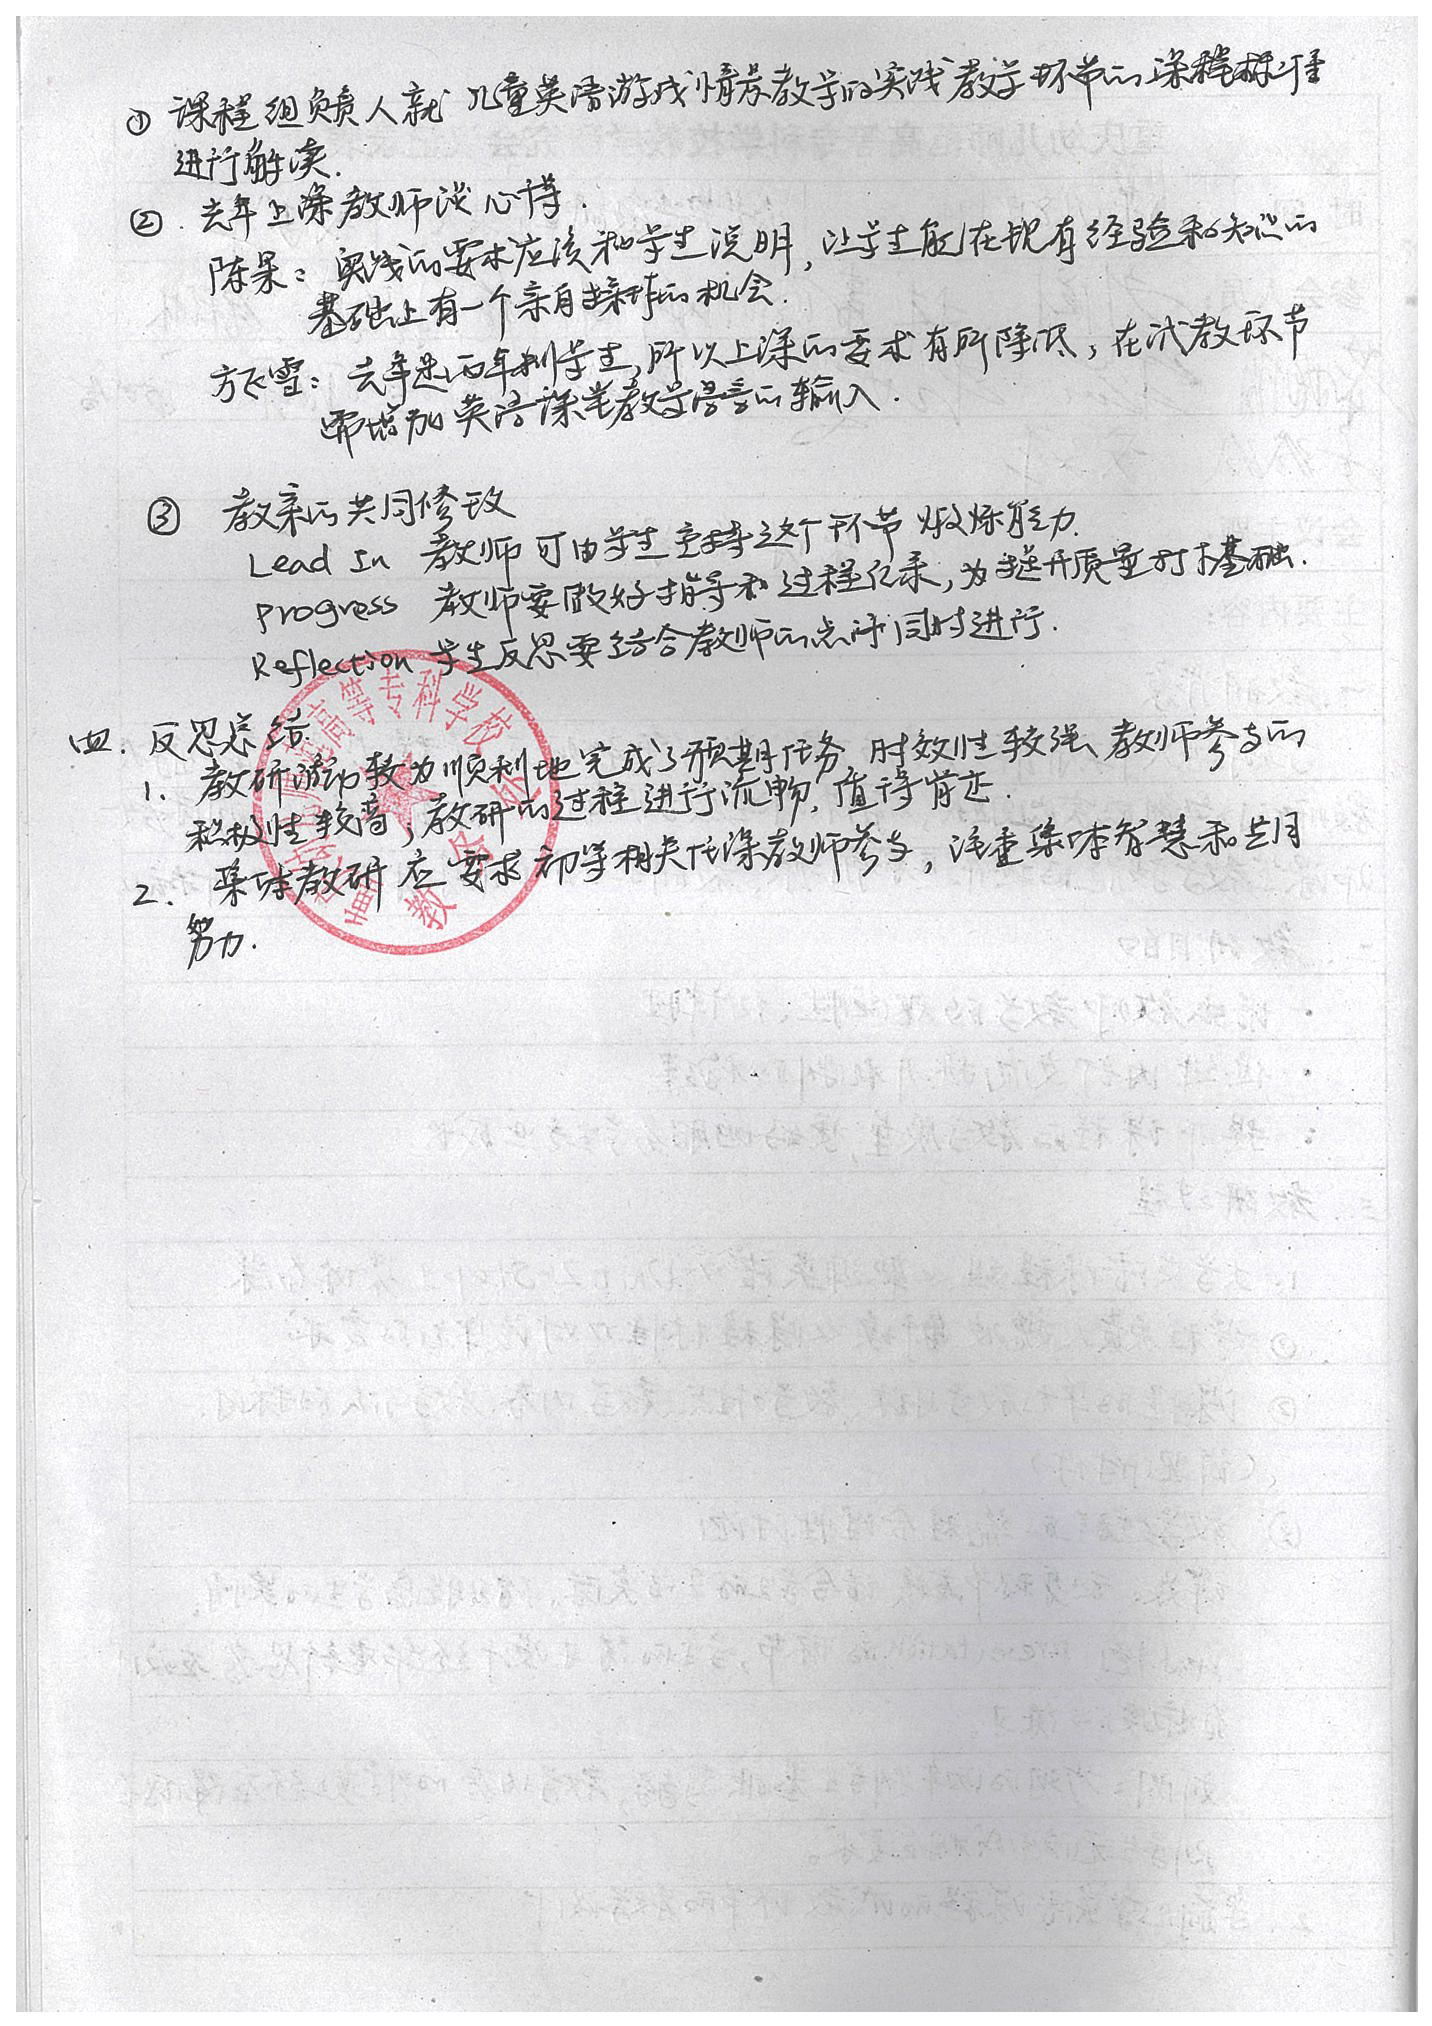 ① 课程组负责人就儿童英语游戏情景教学的实践教学环节的课程标准
进行解读.
②. 去年上课教师谈心得.
陈果: 实践的要求应该和学生说明, 让学生能在现有经验和知识的
基础上有一个亲自操作的机会.
方飞雪: 去年是两年制学生, 所以上课的要求有所降低, 在试教环节
需增加英语课堂教学语言的输入.
③ 教案的共同修改
Lead In 教师可由学生主持这个环节 锻炼能力.
Progress 教师要做好指导和过程记录, 为提升质量打下基础.
Reflection 学生反思要结合教师的点评同时进行.
四. 反思总结.
1. 教研活动较为顺利地完成了预期任务, 时效性较强, 教师参与的
积极性较高; 教研的过程进行流畅, 值得肯定.
2. 集体教研应要求初等相关任课教师参与, 注重集体智慧和共同
努力.
高等专科学校
教